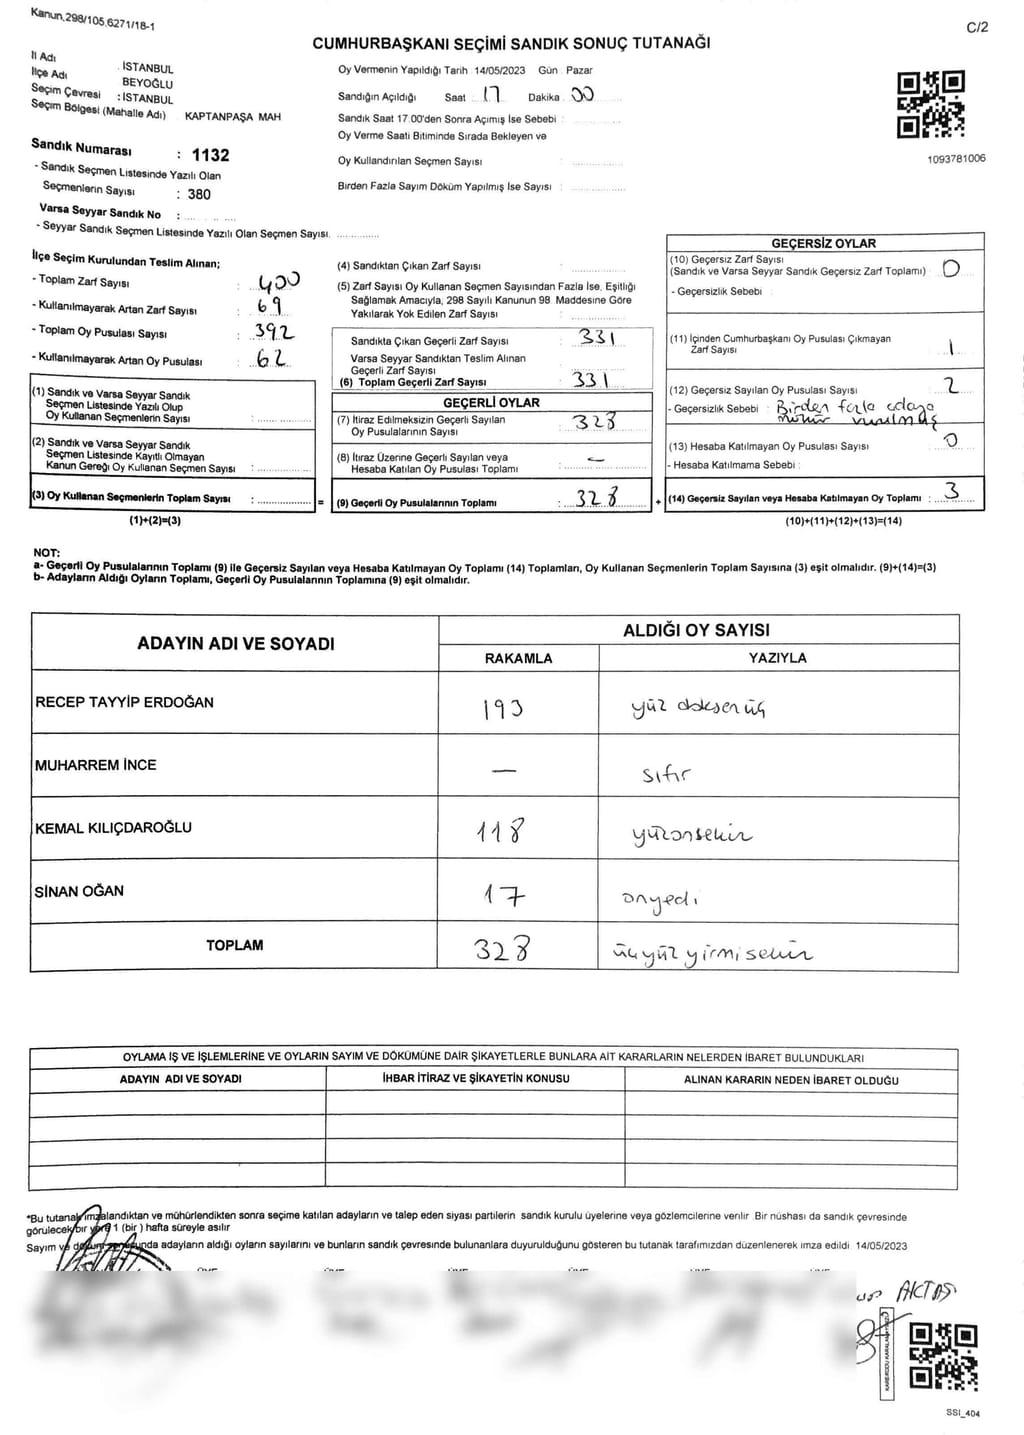 Kanun.298/105.6271/18-1
C/2
CUMHURBAŞKANI SEÇİMİ SANDIK SONUÇ TUTANAĞI
İl Adı : İSTANBUL
İlçe Adı BEYOĞLU
Seçim Çevresi : İSTANBUL
Seçim Bölgesi (Mahalle Adı) KAPTANPAŞA MAH
Sandık Numarası : 1132
- Sandık Seçmen Listesinde Yazılı Olan
Seçmenlerin Sayısı : 380
Varsa Seyyar Sandık No :
- Seyyar Sandık Seçmen Listesinde Yazılı Olan Seçmen Sayısı.
Oy Vermenin Yapıldığı Tarih 14/05/2023 Gün Pazar
Sandığın Açıldığı Saat 17 Dakika 00
Sandık Saat 17.00'den Sonra Açımış İse Sebebi :
Oy Verme Saati Bitiminde Sırada Bekleyen ve
Oy Kullandırılan Seçmen Sayısı :
Birden Fazla Sayım Döküm Yapılmış İse Sayısı :
1093781006
İlçe Seçim Kurulundan Teslim Alınan;
- Toplam Zarf Sayısı : 400
- Kullanılmayarak Artan Zarf Sayısı : 69
- Toplam Oy Pusulası Sayısı : 392
- Kullanılmayarak Artan Oy Pusulası : 62
(1) Sandık ve Varsa Seyyar Sandık
Seçmen Listesinde Yazılı Olup
Oy Kullanan Seçmenlerin Sayısı :
(2) Sandık ve Varsa Seyyar Sandık
Seçmen Listesinde Kayıtlı Olmayan
Kanun Gereği Oy Kullanan Seçmen Sayısı :
(3) Oy Kullanan Seçmenlerin Toplam Sayısı : =
(1)+(2)=(3)
(4) Sandıktan Çıkan Zarf Sayısı :
(5) Zarf Sayısı Oy Kullanan Seçmen Sayısından Fazla İse, Eşitliği
Sağlamak Amacıyla, 298 Sayılı Kanunun 98 Maddesine Göre
Yakılarak Yok Edilen Zarf Sayısı :
Sandıkta Çıkan Geçerli Zarf Sayısı : 331
Varsa Seyyar Sandıktan Teslim Alınan
Geçerli Zarf Sayısı :
(6) Toplam Geçerli Zarf Sayısı : 331
GEÇERLİ OYLAR
(7) İtiraz Edilmeksizin Geçerli Sayılan : 328
Oy Pusulalarının Sayısı
(8) İtiraz Üzerine Geçerli Sayılan veya : —
Hesaba Katılan Oy Pusulası Toplamı
(9) Geçerli Oy Pusulalarının Toplamı : 328 +
GEÇERSİZ OYLAR
(10) Geçersiz Zarf Sayısı
(Sandık ve Varsa Seyyar Sandık Geçersiz Zarf Toplamı) : 0
- Geçersizlik Sebebi :
(11) İçinden Cumhurbaşkanı Oy Pusulası Çıkmayan
Zarf Sayısı : 1
(12) Geçersiz Sayılan Oy Pusulası Sayısı : 2
- Geçersizlik Sebebi : Birden fazla adaya
mühür vurulmuş
(13) Hesaba Katılmayan Oy Pusulası Sayısı : 0
- Hesaba Katılmama Sebebi :
(14) Geçersiz Sayılan veya Hesaba Katılmayan Oy Toplamı : 3
(10)+(11)+(12)+(13)=(14)
NOT:
a- Geçerli Oy Pusulalarının Toplamı (9) ile Geçersiz Sayılan veya Hesaba Katılmayan Oy Toplamı (14) Toplamları, Oy Kullanan Seçmenlerin Toplam Sayısına (3) eşit olmalıdır. (9)+(14)=(3)
b- Adayların Aldığı Oyların Toplamı, Geçerli Oy Pusulalarının Toplamına (9) eşit olmalıdır.
ADAYIN ADI VE SOYADI ALDIĞI OY SAYISI
RAKAMLA YAZIYLA
RECEP TAYYİP ERDOĞAN 193 yüz doksen üç
MUHARREM İNCE — sıfır
KEMAL KILIÇDAROĞLU 118 yüzonsekiz
SİNAN OĞAN 17 onyedi
TOPLAM 328 üçyüz yirmi sekiz
OYLAMA İŞ VE İŞLEMLERİNE VE OYLARIN SAYIM VE DÖKÜMÜNE DAİR ŞİKAYETLERLE BUNLARA AİT KARARLARIN NELERDEN İBARET BULUNDUKLARI
ADAYIN ADI VE SOYADI İHBAR İTİRAZ VE ŞİKAYETİN KONUSU ALINAN KARARIN NEDEN İBARET OLDUĞU
*Bu tutanak imzalandıktan ve mühürlendikten sonra seçime katılan adayların ve talep eden siyası partilerin sandık kurulu üyelerine veya gözlemcilerine verilir Bir nüshası da sandık çevresinde
görülecek bir yere 1 (bir) hafta süreyle asılır
Sayım ve döküm sonucunda adayların aldığı oyların sayılarını ve bunların sandık çevresinde bulunanlara duyurulduğunu gösteren bu tutanak tarafımızdan düzenlenerek imza edildi 14/05/2023
AKTAŞ
SSI_404